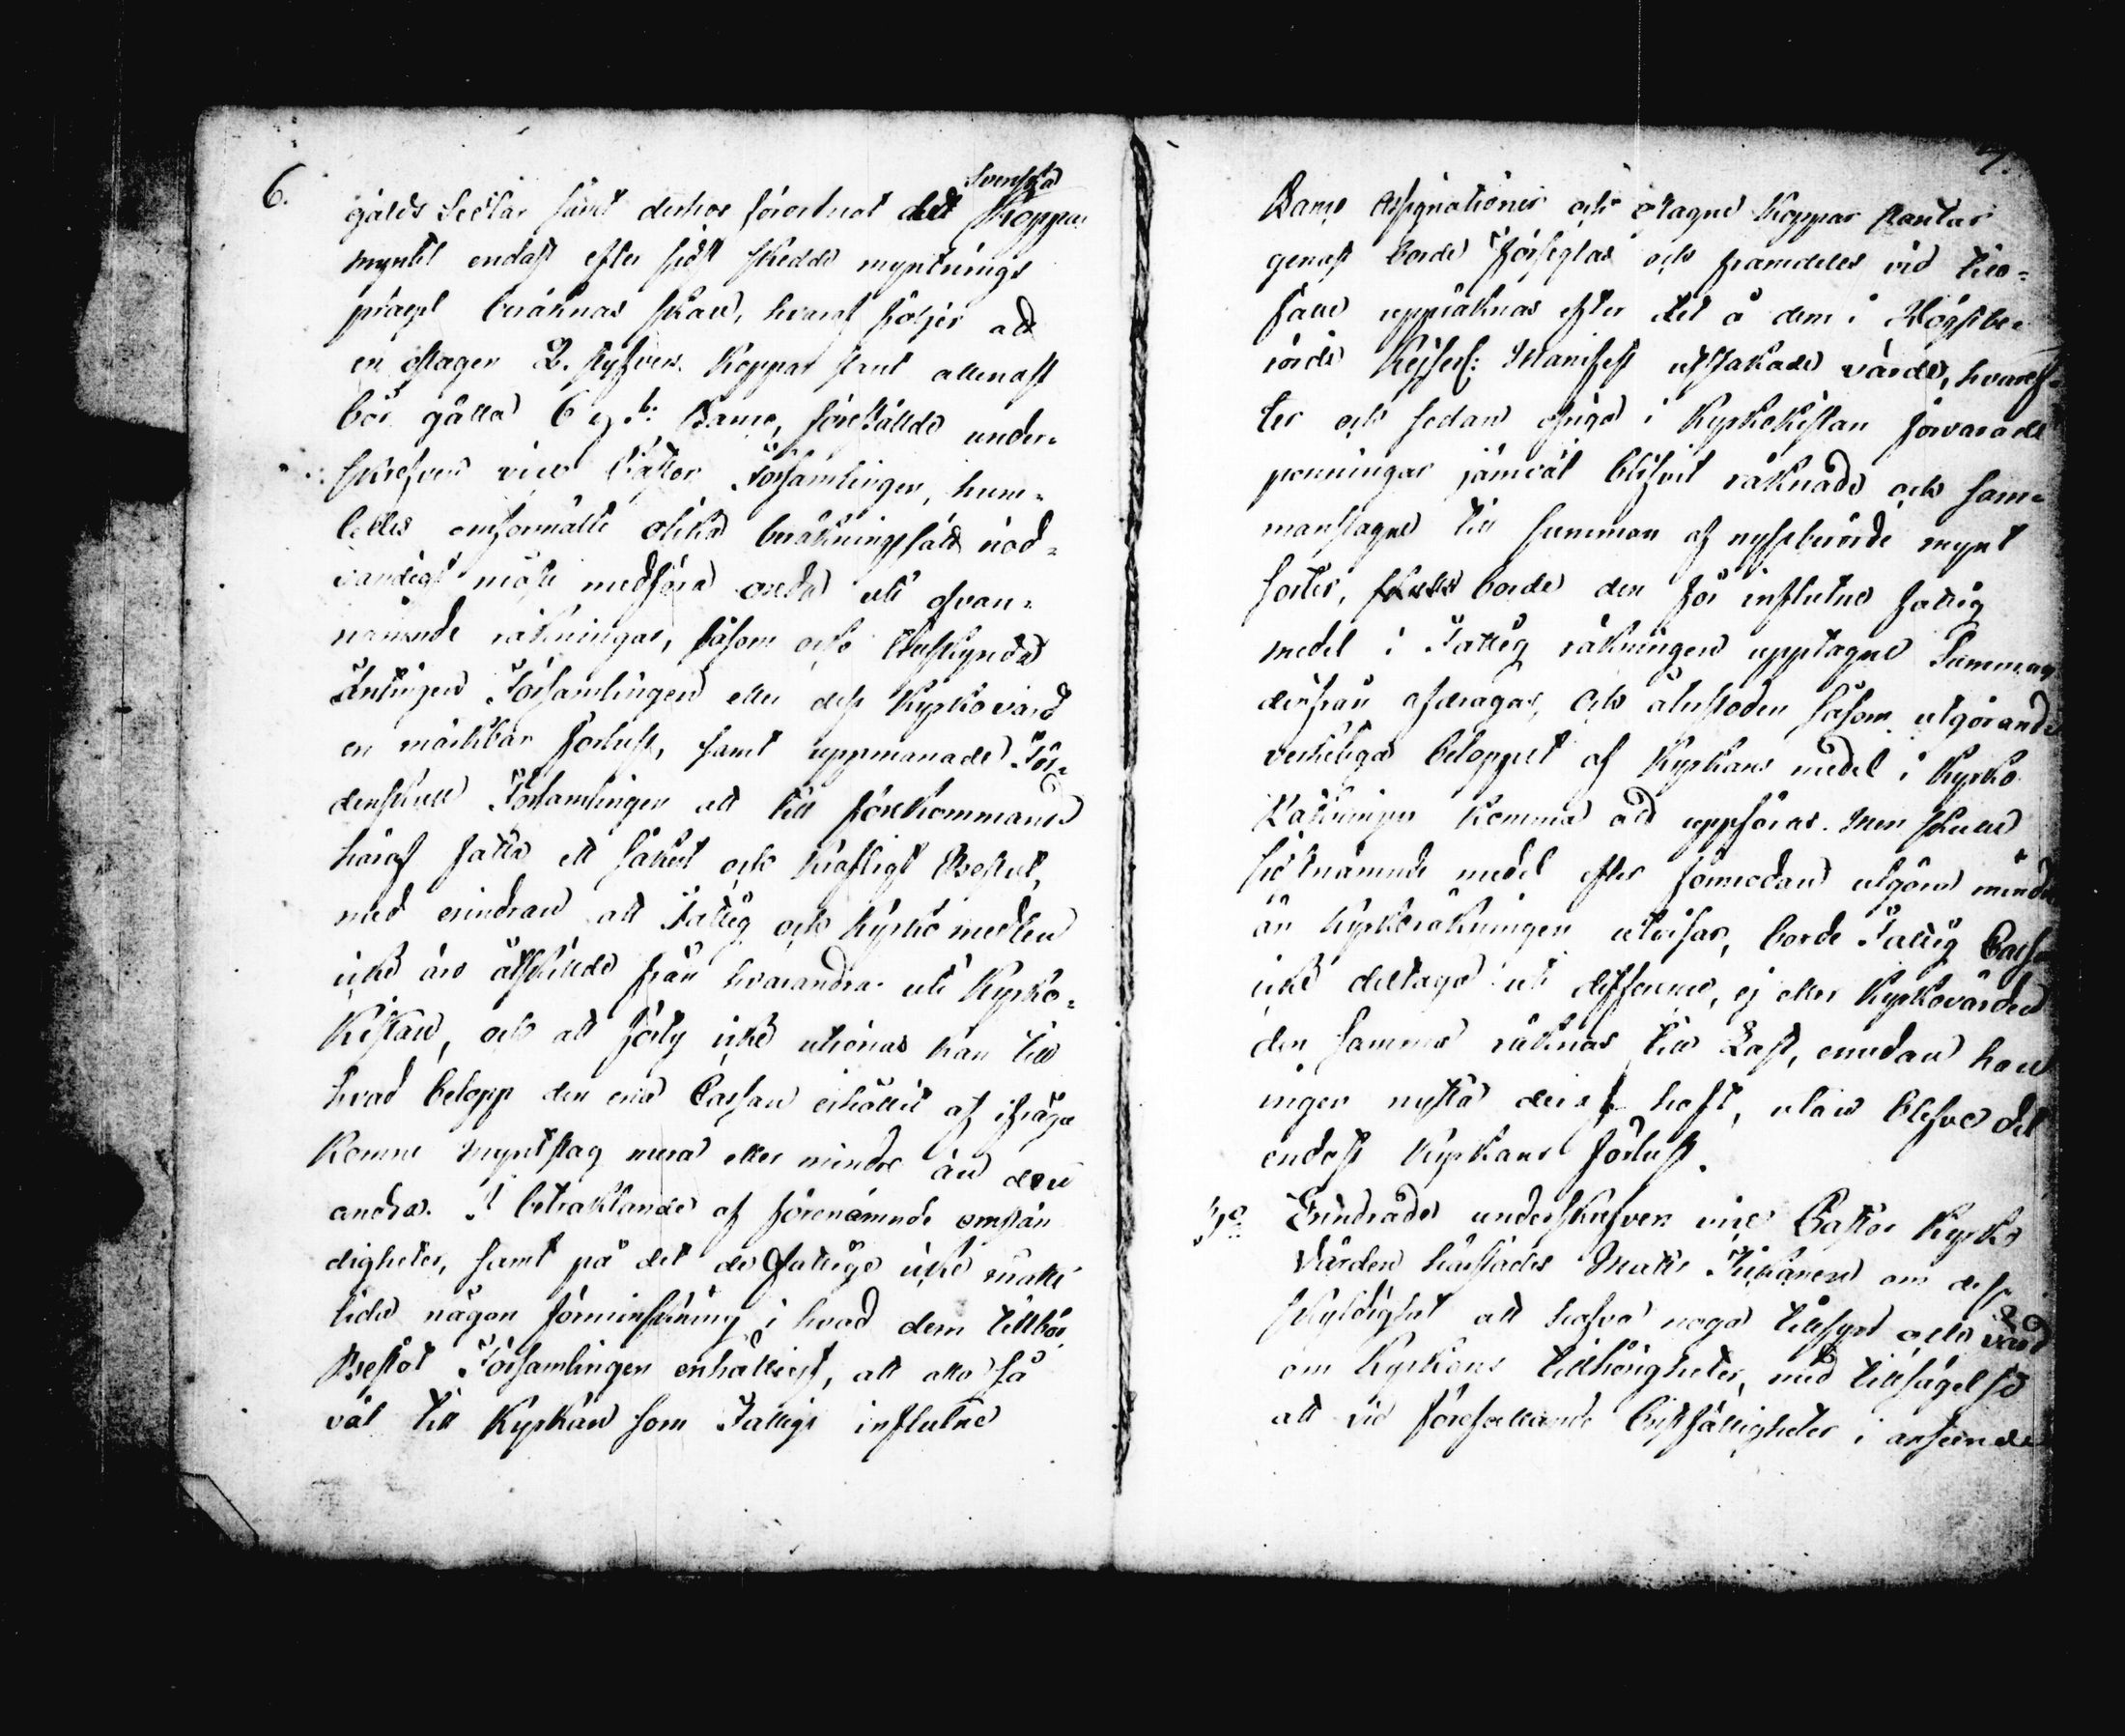 6.
Svenska
gälds Sedlar samt derhos förordnat det Koppar
myntet endast efter sidst skedde myntnings
prægel beräknas skall, hvaraf följer att
en otagen 2. styfvers Koppar slant allenast
bör gälla 6 Banco, föreställde under-
skrefven vice Pastor Församlingen, hure-
ledes omförmälte olika beräkningssätt nöd-
vändigt måste medföra oreda uti ofvan-
nämnde räkningar, såsom ock tillskynda
Äntingen Församlingen eller dess Kyrkovärd
en märkbar förlust, samt uppmanade För-
denskull Församlingen att till förekommande
häraf fatta ett säkert och kraftigt Beslut,
med erindran att Fattig och Kyrko medlen
icke äro åtskillde från hvarandra uti Kyrko-
Kistan, och att förty icke utrönas kan till
hvad belopp den ena Cassan erhållit af ifråga
komne myntslag mera eller mindre än den
andra. I betraktande af förenämnde omstän
digheter, samt på det de fattige icke måtte
lida någon förminskning i hvad dem tillhör
Beslöt Församlingen enhälligt, att alla så
väl till Kyrkan som Fattige influtne
7.
Banco Assignationer och otagne Koppar slantar
genast borde förseglas och framdeles vid till-
fälle uppräknas efter det å dem i Högstbe-
rörde Kejserl: Manifest utsatade värde, hvaref-
ter och sedan öfriga i Kyrkokistan förvarade
penningar jämväl blifvit räknade och sam-
manslagne till summan af nyssberörde mynt
sorter, borde den för influtne fattig
medel i Fattig räkningen upptagne Summan
derifrån afdragas, och återstoden såsom utgörande
verkeliga beloppet af Kyrkans medel i Kyrko
Räkningen komma att uppföras. Men skulle
sistnämnde medel efter förmodan utgöra mindre
än Kyrkoräkningen utvisar, borde Fattig Cassan
icke deltaga uti differencen, ej eller Kyrkovärden
den samma räknas till Last, emedan han
ingen nytta deraf haft, utan blefve det
endast Kyrkans förlust.
3:o Erindrade underskrefven vice Pastor Kyrko
Värden härstädes Matts om dess
skyldighet att hafva noga tillsyn och vård
om Kyrkans tillhörigheter, med tillsägelse
att vid förefallande bristfälligheter i anseende